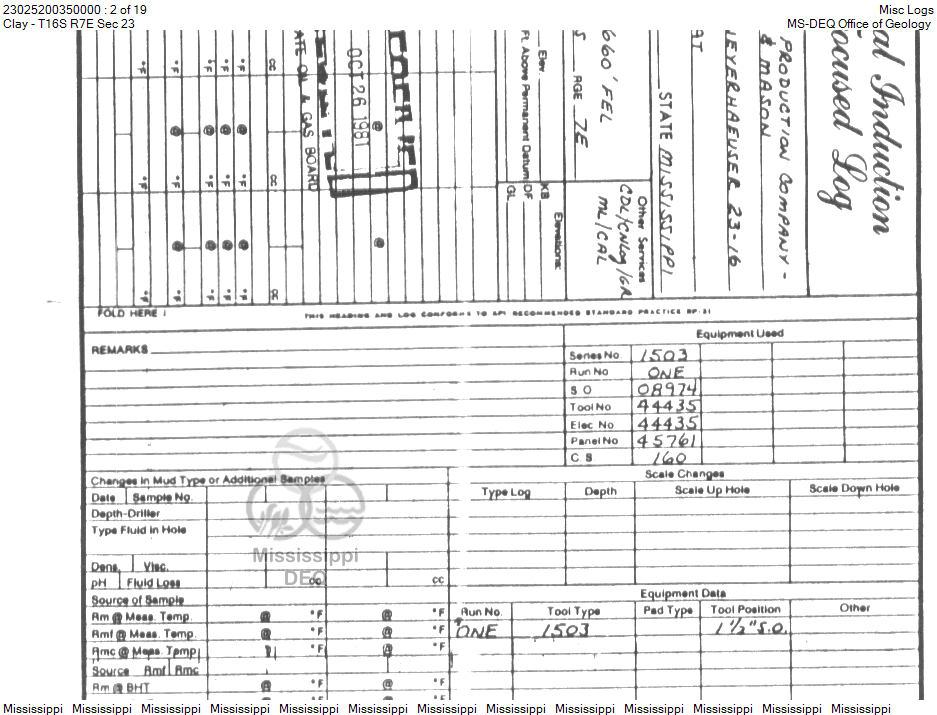 23025200350000 : 2 of 19
Misc Logs
Clay - T16S R7E Sec 23
MS-DEQ Office of Geology
al Induction
ocused Log
PRODUCTION COMPANY -
& MASON
LEYERHAEUSER 23-16
AT
STATE MISSISSIPPI
660' FEL
S RGE 7E
Other Services
CDL/CNLog/GR
ML/CAL
Elev.
Ft. Above Permanent Datum
Elevations:
KB
DF
GL
OCT 26 1981
ATE OIL & GAS BOARD
cc cc cc
°F °F °F °F °F
@ @ @ @ @
°F °F °F °F °F
@ @ @ @ @
°F °F °F °F °F
FOLD HERE
THIS HEADING AND LOG CONFORMS TO API RECOMMENDED STANDARD PRACTICE RP-31
REMARKS
Equipment Used
Series No. 1503
Run No ONE
S O 08974
Tool No 44435
Elec No 44435
Panel No 45761
C S 160
Changes in Mud Type or Additional Samples
Date Sample No.
Depth-Driller
Type Fluid in Hole
Dens. Visc.
pH Fluid Loss cc cc
Source of Sample
Rm @ Meas. Temp. @ °F @ °F
Rmf @ Meas. Temp. @ °F @ °F
Rmc @ Meas. Temp. °F @ °F
Source Rmf Rmc
Rm @ BHT @ °F @ °F
Mississippi
DEQ
Scale Changes
Type Log Depth Scale Up Hole Scale Down Hole
Equipment Data
Run No. Tool Type Pad Type Tool Position Other
ONE 1503 1 1/2" S.O.
Mississippi Mississippi Mississippi Mississippi Mississippi Mississippi Mississippi Mississippi Mississippi Mississippi Mississippi Mississippi Mississippi